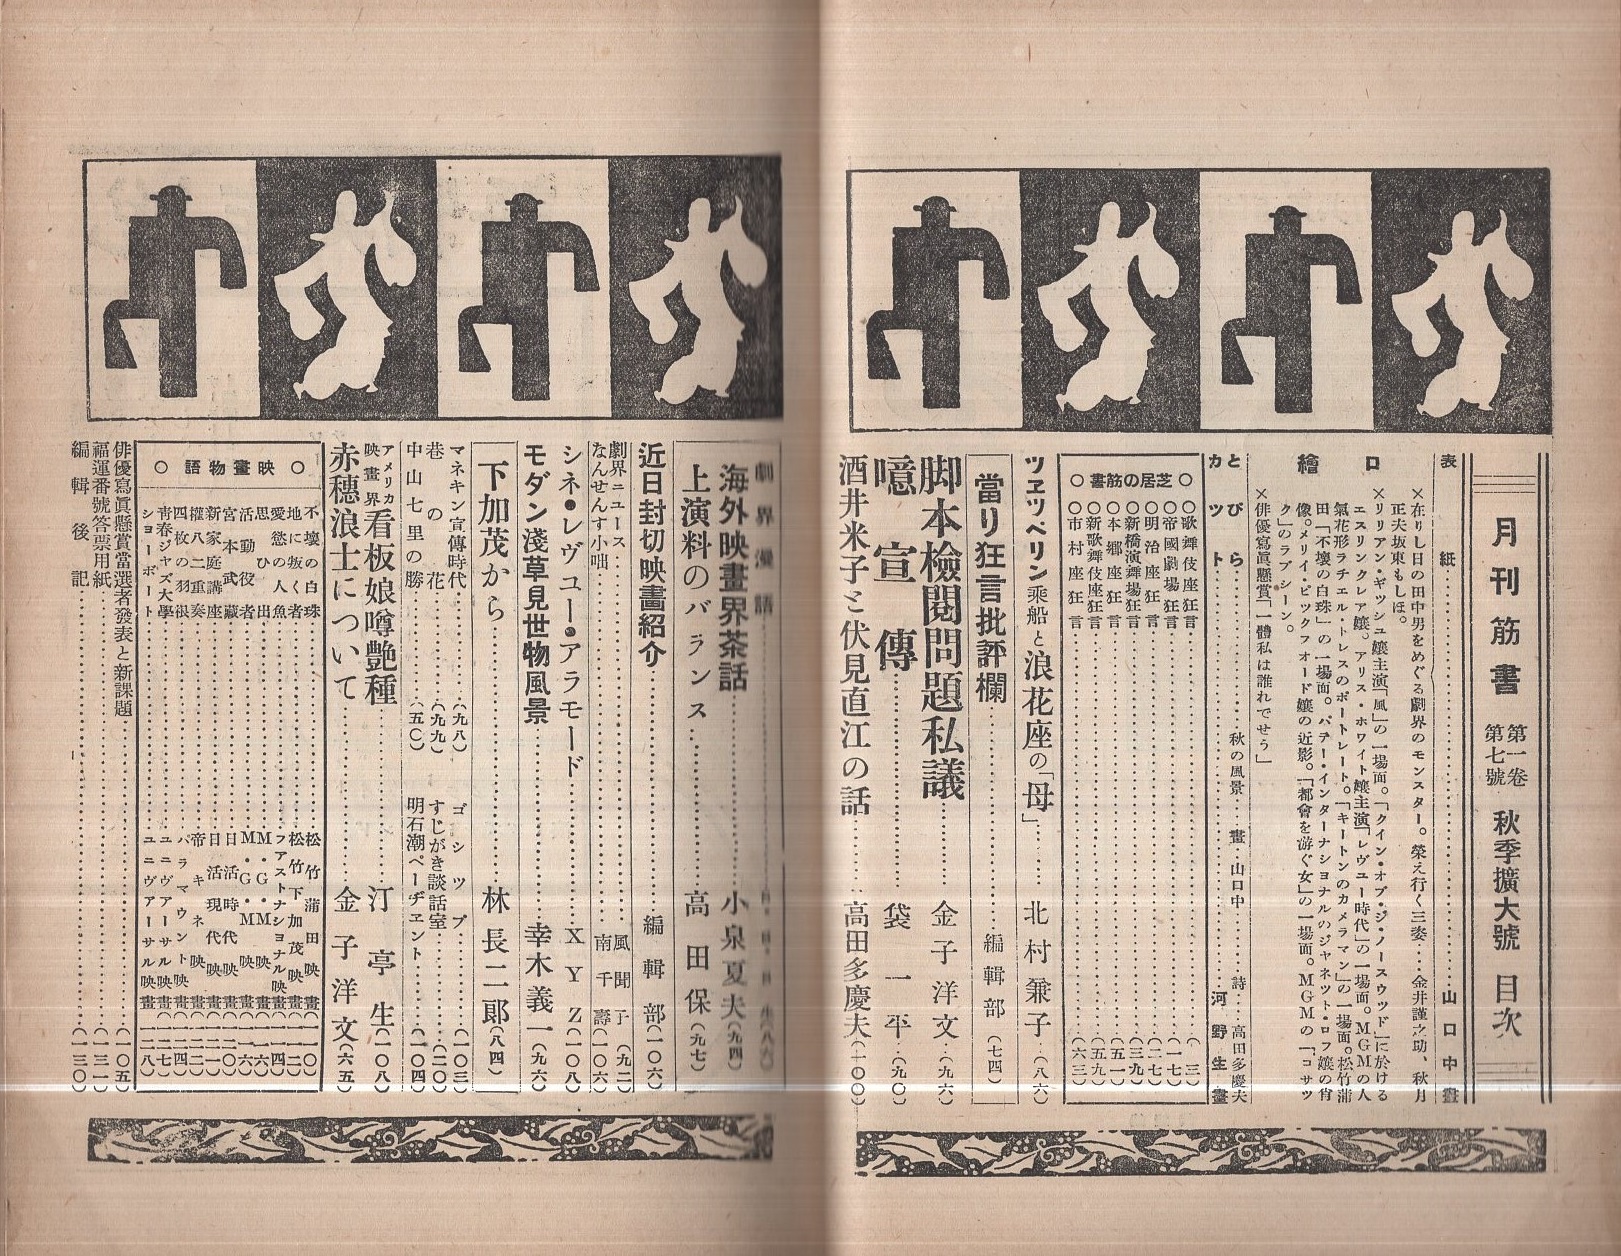 月刊筋書 第一卷第七號 秋季擴大號 目次
表紙……山口中畫
口繪
×在りし日の田中男をめぐる劇界のモンスター。榮え行く三姿…金井謹之助、秋月
正夫坂東もしほ。
×リリアン・ギツシユ孃主演「風」の一場面。「クイン・オブ・ジ・ノースウツド」に於ける
エスリンクレア孃。アリス・ホワイト孃主演「レヴユー時代」の一場面。MGMの人
氣花形ラチエル・トレスのポートレート。「キートンのカメラマン」の一場面。松竹蒲
田「不壊の白珠」の一場面。パテー・インターナショナルのジャネツト・ロフ孃の肖
像。メリイ・ピツクフオード孃の近影。「都會を游ぐ女」の一場面。MGMの「コサツ
ク」のラブシーン。
×俳優寫眞懸賞「一體私は誰れでせう」
とびら……秋の風景 畫 山口中 詩 高田多慶夫
カツト……河野生畫
○芝居の筋書○
○歌舞伎座狂言……(三)
○帝國劇場狂言……(一七)
○明治座狂言……(二七)
○新橋演舞場狂言……(三九)
○本郷座狂言……(五一)
○新歌舞伎座狂言……(五九)
○市村座狂言……(六三)
ツエツペリン乘船と浪花座の「母」……北村兼子(八六)
當り狂言批評欄……編輯部(七四)
脚本檢閲問題私議……金子洋文(九六)
噫宣傳……袋一平(九〇)
酒井米子と伏見直江の話……高田多慶夫(一〇〇)
劇界漫語
海外映畫界茶話……小泉夏夫(九四)
上演料のバランス……高田保(九七)
近日封切映畫紹介……編輯部(一〇六)
劇界ニュース……風聞子(九二)
なんせんす小咄……南千壽(一〇六)
シネ・レヴュー・アラモード……XYZ(一〇八)
モダン淺草見世物風景……幸木義一(九六)
下加茂から……林長二郎(八四)
マネキン宣傳時代……(九八)
ゴシツプ……(一〇三)
巷の花……(九九)
すじがき談話室……(一二〇)
中山七里の勝……(五〇)
明石潮ページエント……(一〇四)
アメリカ映畫界看板娘噂艶種……汀亭生(一〇八)
赤穗浪士について……金子洋文(六五)
○映畫物語○
不壊の白珠……松竹蒲田映畫(一一〇)
地に叛く者……松竹下加茂映畫(一一二)
愛慾の人魚……フアストナショナル映畫(一一四)
思ひ出……M・G・M映畫(一一六)
活動役者……M・G・M映畫(一一六)
宮本武藏……日活時代映畫(一二〇)
新家庭講座……日活現代映畫(一二一)
權八二重奏……帝キネ映畫(一二二)
四枚の羽根……パラマウント映畫(一二四)
青春ジャズ大學……ユニヴアーサル映畫(一二七)
ショーボート……ユニヴアーサル映畫(一二八)
俳優寫眞懸賞當選者發表と新課題……(一〇五)
福運番號答票用紙……(一三一)
編輯後記……(一三〇)